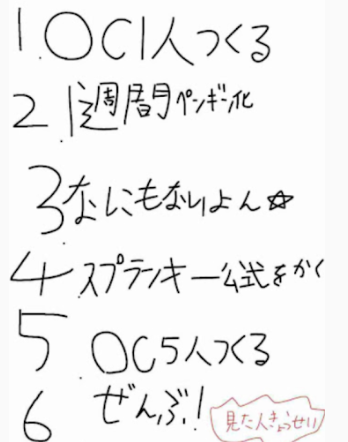 1.OC1人つくる
2.1週間ペンギン化
3.なにもないよん☆
4.スプランキー公式をかく
5.OC5人つくる
6.ぜんぶ!
見た人きょうせい